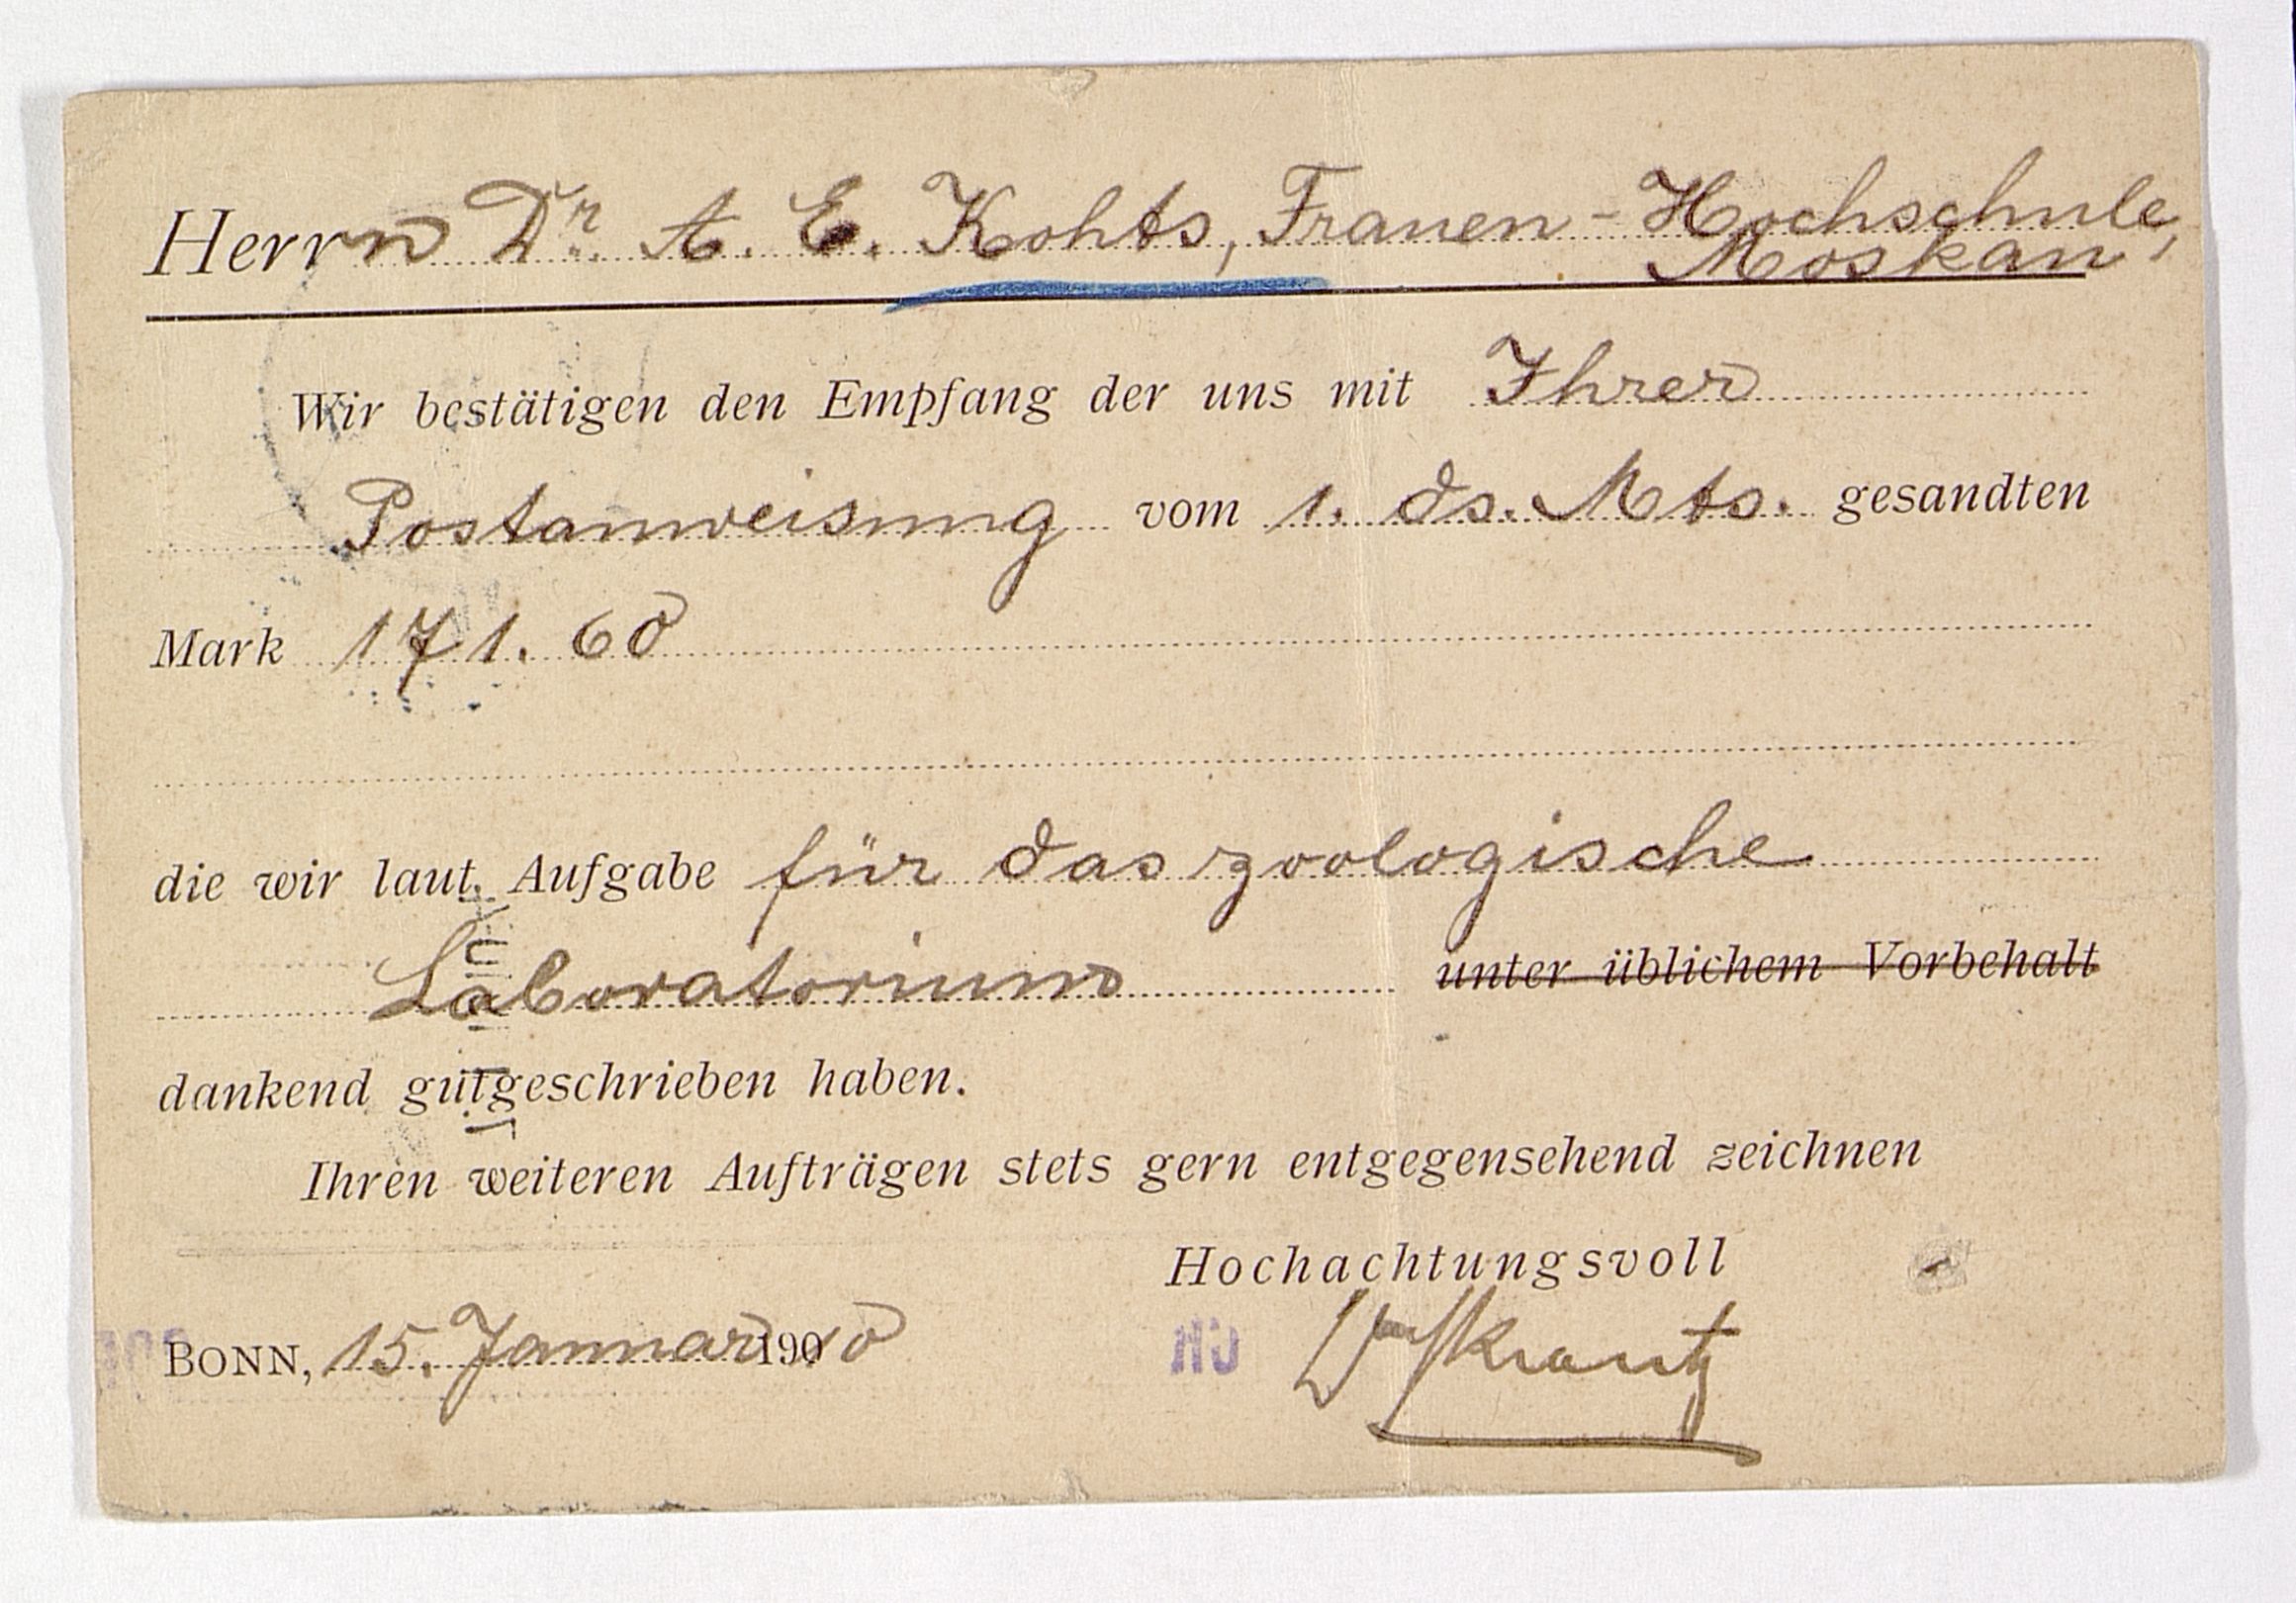 Herrn Dr. A. E. Kohts, Frauen-Hochschule,
Moskau
Wir bestätigen den Empfang der uns mit Ihrer
Postanweisung vom 1. ds. Mts. gesandten
Mark 171.60
die wir laut Aufgabe für das zoologische
Laboratorium unter üblichem Vorbehalt
dankend gutgeschrieben haben.
Ihren weiteren Aufträgen stets gern entgegensehend zeichnen
Hochachtungsvoll
BONN, 15. Januar 1910
Krantz